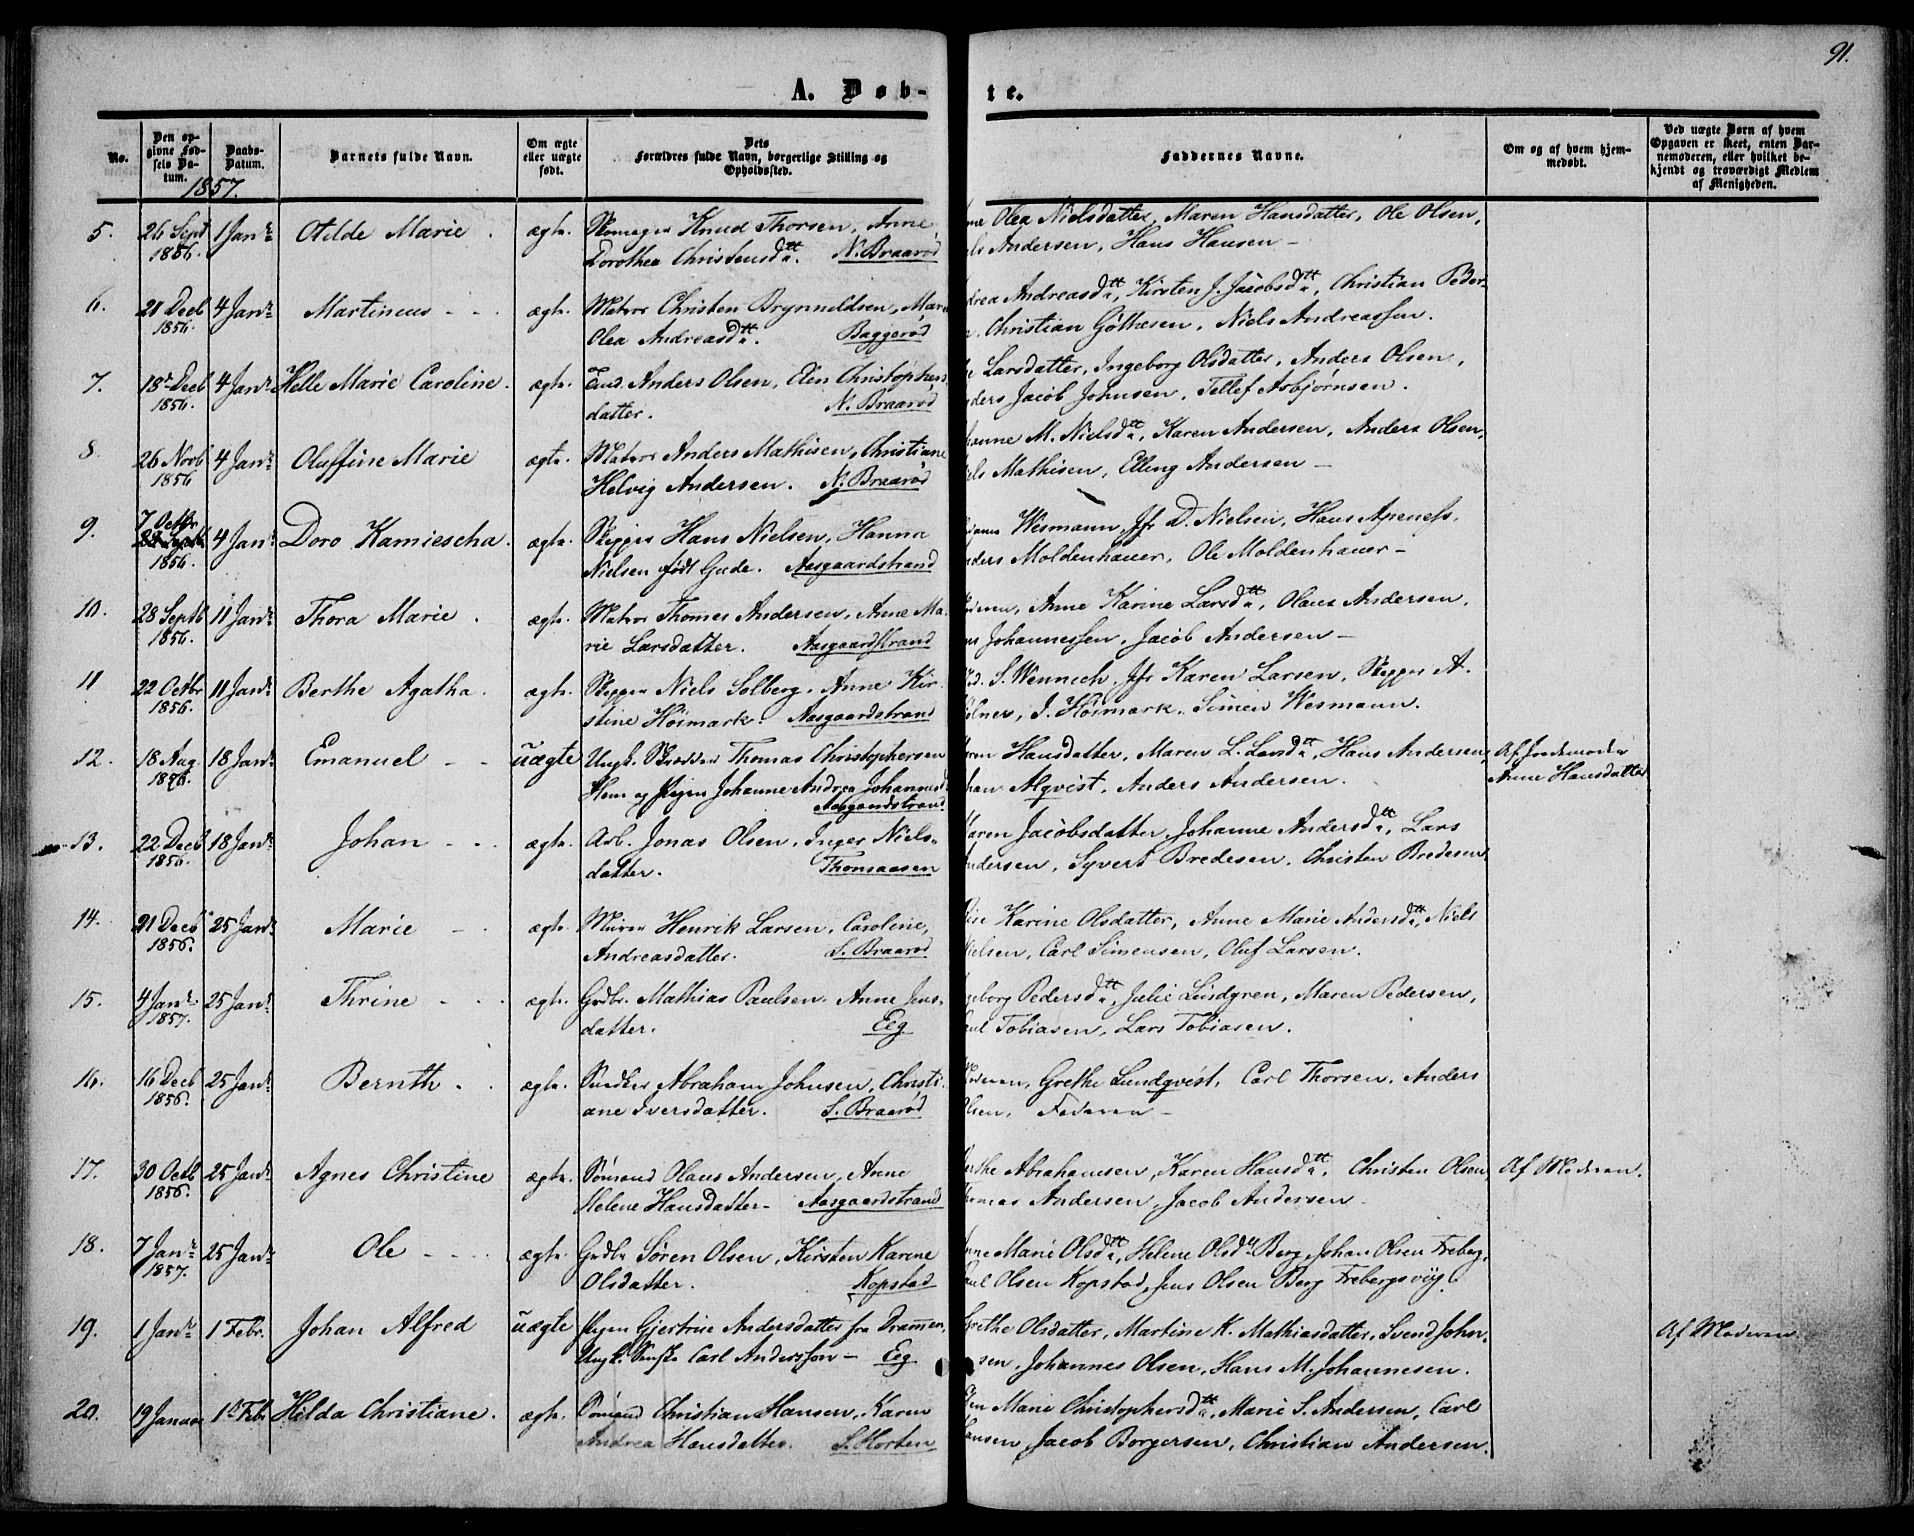 91.
A. Døb- te.
No.
Den opgivne Fødsels Datum.
Daabs-Datum.
Barnets fulde Navn.
Om ægte eller uægte født.
Dets Forældres fulde Navn, borgerlige Stilling og Opholdssted.
Faddernes Navne.
Om og af hvem hjemmedøbt.
Ved uægte Børn af hvem Opgaven er skeet, enten Barnemoderen, eller hvilket bekjendt og troværdigt Medlem af Menigheden.
1857.
5. 26 Sept 1 Janr Otilde Marie. ægte. Skomager Knud Thorsen, Anne Olea Nielsdatter, Maren Hansdatter, Ole Olsen,
1856. Dorothea Christensdtt. N. Braarød Andersen, Hans Hansen –
6. 21 Decb 4 Janr Martinus - - ægte. Matros Christen Brynnildsen, Andreasdtt, Kirsten J. Jacobsdtt, Christian Peder-
1856. Olea Andreasdtt. Baggerød Christian Gøthesen, Niels Andreassen.
7. 18de Decb 4 Janr Helle Marie Caroline. ægte. Anders Olsen, Elen Christophers Larsdatter, Ingeborg Olsdatter, Anders Olsen,
1856. datter. N. Braarød Jacob Johnsen, Tellef Asbjørnsen.
8. 26 Novb 4 Janr Oluffine Marie ægte. Matros Anders Mathisen, Christiane M. Nielsdtt, Karen Andersen, Anders Olsen,
1856 Helvig Andersen. N. Braarød Mathisen, Elling Andersen –
9. 7 Octbr
4 Janr Doro Kamiescha. ægte. Skipper Hans Nielsen, Hanna Wesmann, Jfr D. Nielsen, Hans Apeness.
1856. Nielsen født Gude. Aasgaardstrand Moldenhauer, Ole Moldenhauer –
10. 28 Septb 11 Janr Thora Marie. ægte. Matros Thomas Andersen, Anne Ma- Anne Karine Larsdtt, Olaus Andersen.
1856. rie Larsdatter. Aasgaardstrand Johannessen, Jacob Andersen –
11 22 Octbr 11 Janr Berthe Agatha. ægte. Skipper Niels Solberg, Anne Kir- S. Wennech, Jfr Karen Larsen, Skipper A.
1856. stine Høimark. Aasgaardstrand J. Høimark, Simen Wesmann.
12. 18 Aug 18 Janr Emanuel - - uægte Ungk. Skrædder Thomas Christophersen Hansdatter, Maren L. Larsdtt, Hans Andersen, Af Jordemoder
1856. og Pigen Johanne Andrea Johannesd Almqvist, Anders Andersen. Anne Hansdatter
Aasgaardstrand
13. 22 Decb 18 Janr Johan - - ægte. Arb. Jonas Olsen, Inger Niels- Maren Jacobsdatter, Johanne Andersdtt, Lars
1856. datter. Thonsaasen Andersen, Syvert Bredesen, Christen Bredesen.
14. 21 Decb 25 Janr Marie - ægte. Murer Henrik Larsen, Caroline, Karine Olsdatter, Anne Marie Andersdtt, Niels
1856. Andreasdatter. S. Braarød Nielsen, Carl Simensen, Oluf Larsen.
15. 4 Janr 25 Janr Thrine - - ægte. Grdbr. Mathias Paulsen, Anne Jens- Pedersdtt, Julie Lindgren, Maren Pedersen,
1857. datter. Eeg Tobiasen, Lars Tobiasen.
16. 16 Decb 25 Janr Bernth - - ægte. Snedker Abraham Johnsen, Christi- Grethe Lundqvist, Carl Thorsen, Anders
1856. ane Iversdatter. S. Braarød Olsen, Faderen –
17. 30 Octb 25 Janr Agnes Christine ægte. Sømand Olaus Andersen, Anne Abrahamsen, Karen Hansdtt, Christen Olsen, Af Moderen.
1856. Helene Hansdatter - Aasgaardstrand Thomas Andersen, Jacob Andersen
18. 7 Janr 25 Janr Ole - - - ægte. Grdbr Søren Olsen, Kirsten Karine Marie Olsdtt, Helene Olsdtt Berg, Johan Olsen Freberg,
1857. Olsdatter. Kopstad Olsen Kopstad, Jens Olsen Berg Frebergsvig.
19. 1 Janr 1 Febr. Johan Alfred uægte Pigen Gjertrine Andersdatter fra Drammen, Grethe Olsdatter, Martine K. Mathiasdatter, Svend John- Af Moderen
Ungk. Carl Andersson – Eeg sen, Johannes Olsen, Hans M. Johannesen.
20. 19 Januar 1st Febr Hilda Christiane. ægte. Sømand Christian Hansen, Karen Marie Christophersdtt, Marie S. Andersen, Carl
Andrea Hansdatter. S. Horten Hansen, Jacob Borgersen, Christian Andersen.